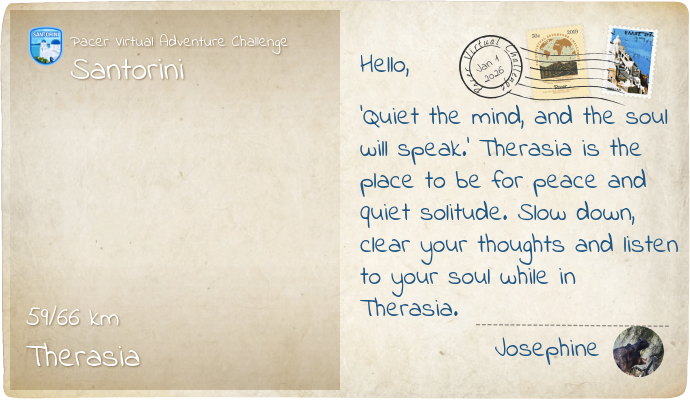 SANTORINI
Pacer Virtual Adventure Challenge
Santorini
59/66 km
Therasia
Pacer Virtual Challenge
Jan 1
2026
Hello,
'Quiet the mind, and the soul
will speak.' Therasia is the
place to be for peace and
quiet solitude. Slow down,
clear your thoughts and listen
to your soul while in
Therasia.
Josephine